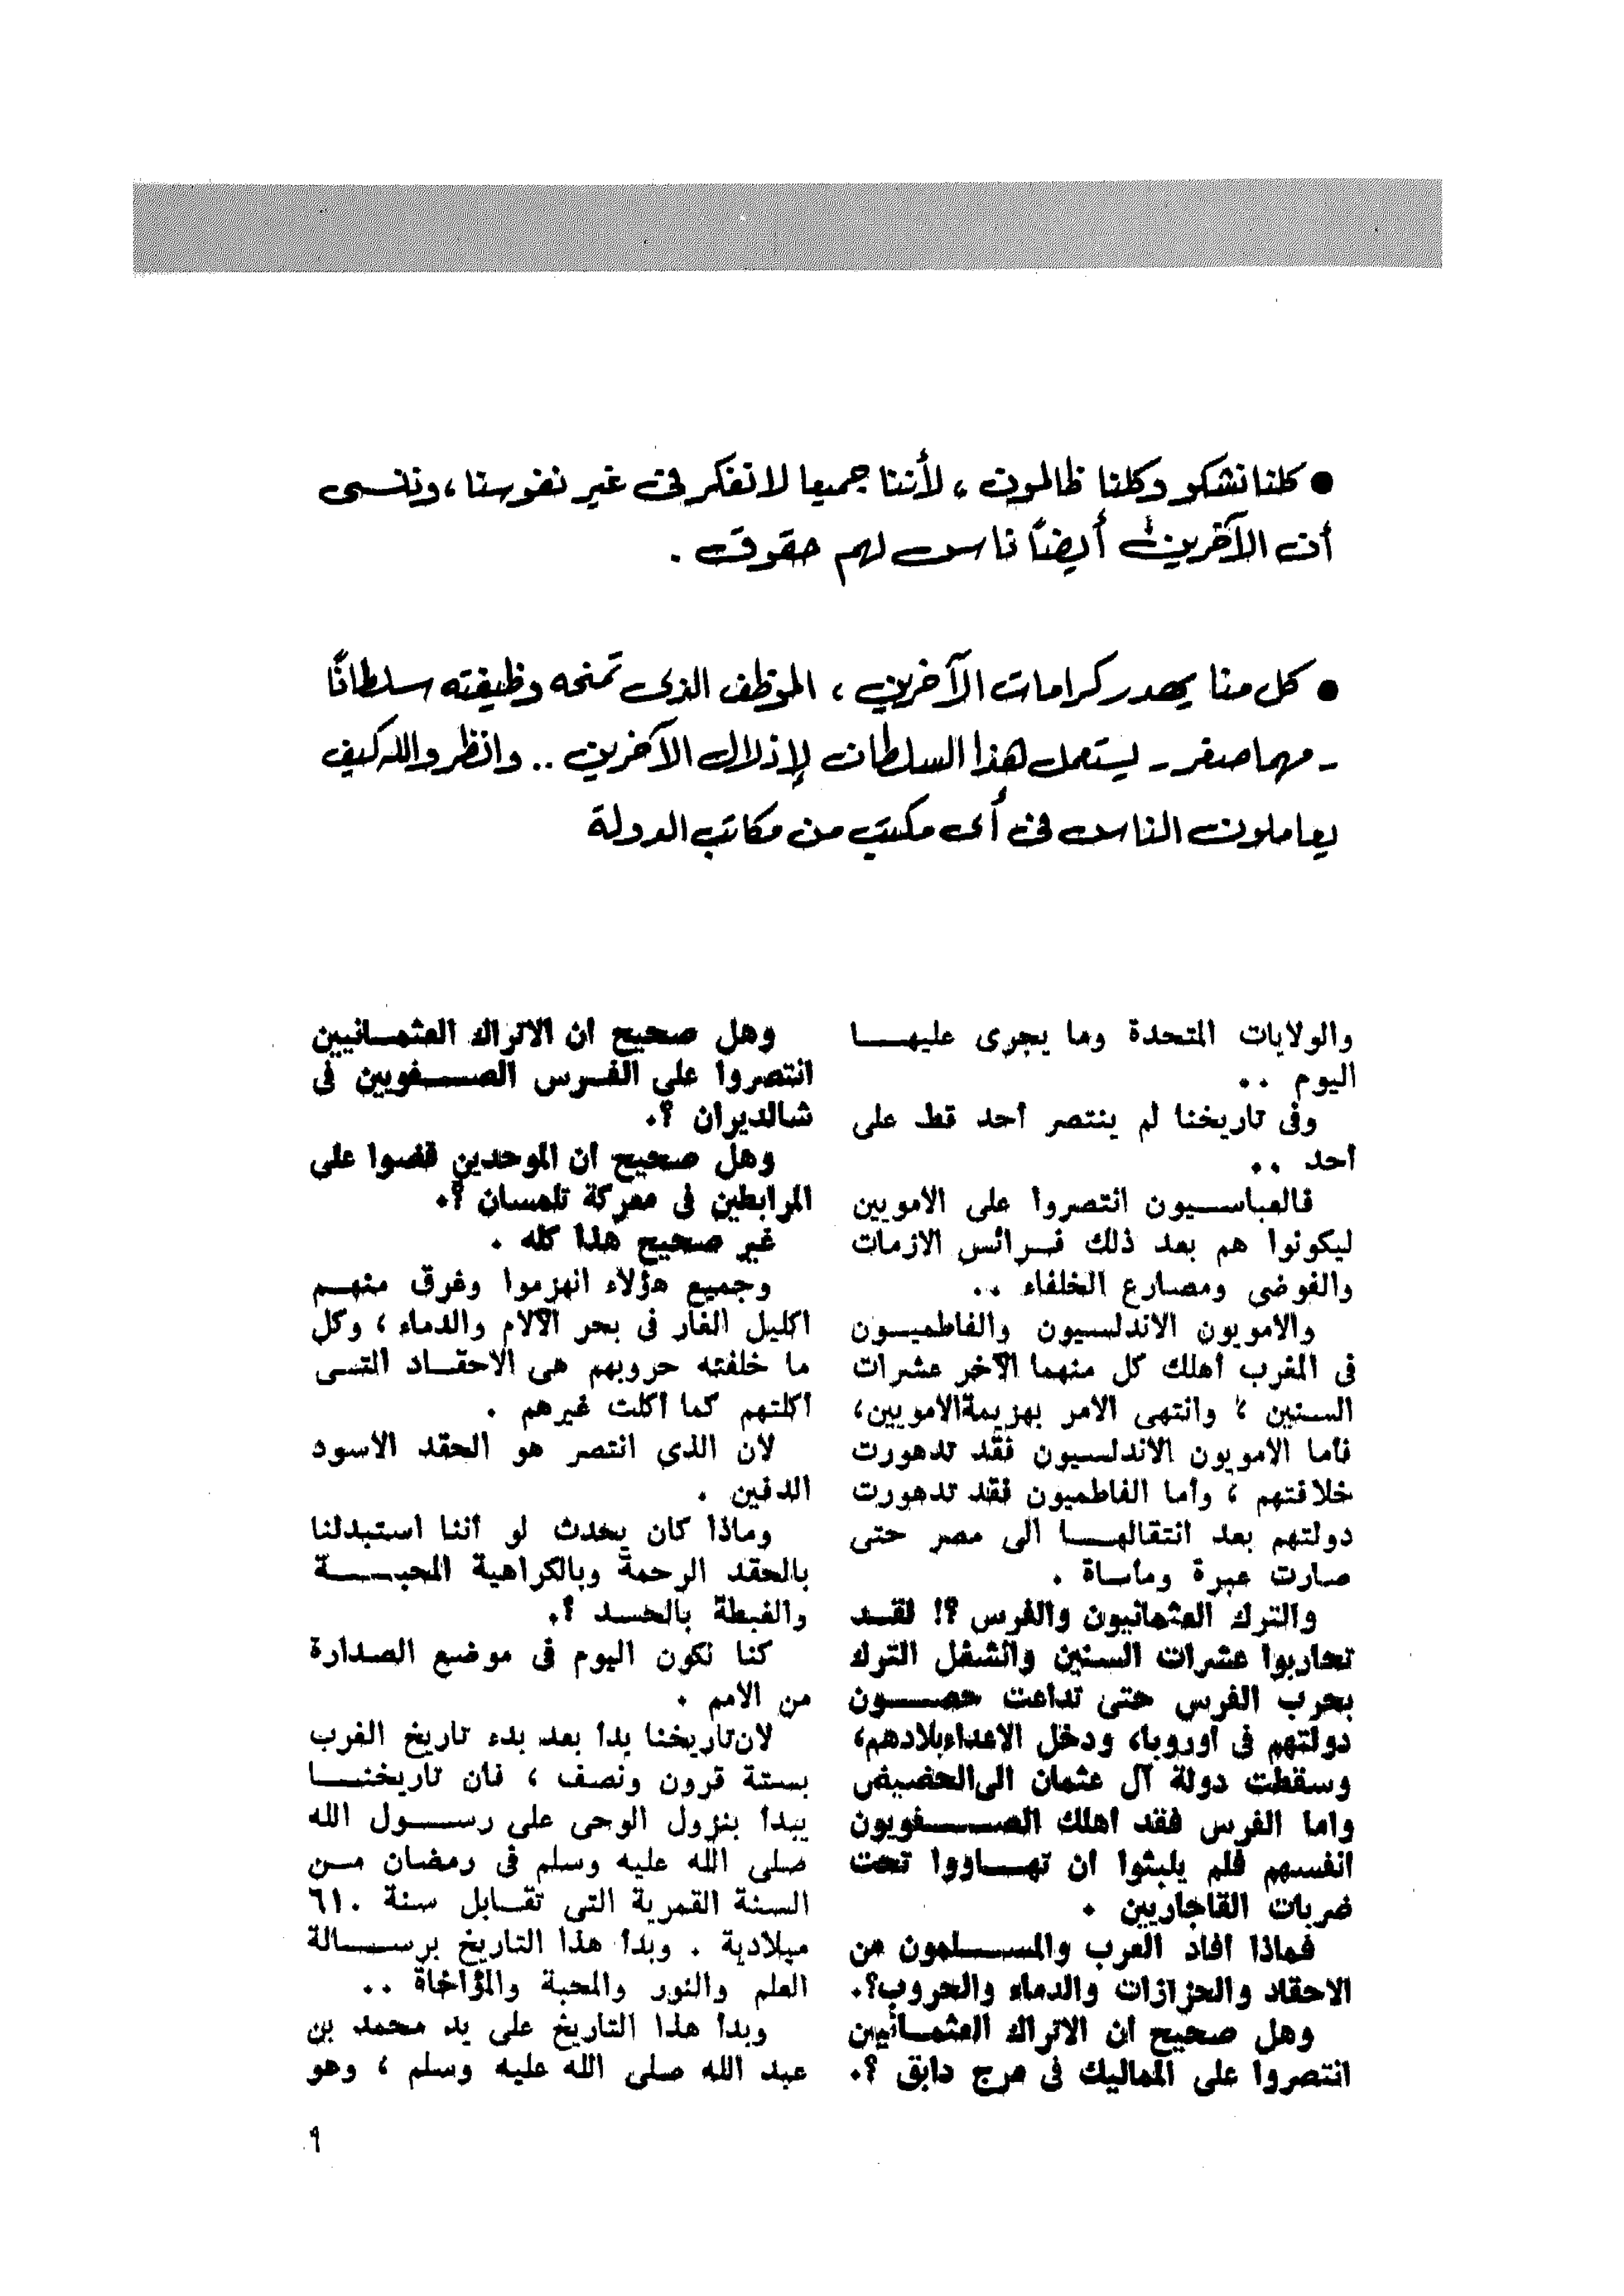 ● كلنا نشكو وكلنا ظالمون ، لأننا جميعا لا نفكر فى غير نفوسنا ، وننسى
أن الآخرين أيضاً ناس لهم حقوق .
● كل منا يهدر كرامات الآخرين ، الموظف الذى تمنحه وظيفته سلطانًا
- مهما صغر - يستعمل هذا السلطان لإذلال الآخرين .. وانظروا لله كيف
يعاملون الناس فى أى مكتب من مكاتب الدولة
والولايات المتحدة وما يجرى عليهـــا
اليوم ..
وفى تاريخنا لم ينتصر أحد قط على
أحد ..
فالعباسـيون انتصروا على الامويين
ليكونوا هم بعد ذلك فـرائس الازمات
والفوضى ومصارع الخلفاء ..
والامويون الاندلسيون والفاطميـون
فى المغرب أهلك كل منهما الآخر عشرات
السنين ، وانتهى الامر بهزيمةالامويين،
فأما الامويون الاندلسيون فقد تدهورت
خلافتهم ، وأما الفاطميون فقد تدهورت
دولتهم بعد انتقالهـــا الى مصر حتى
صارت عبرة ومأساة .
والترك العثمانيون والفرس ؟! لقـد
تحاربوا عشرات السنين وانشغل الترك
بحرب الفرس حتى تداعت حصــون
دولتهم فى أوروبا، ودخل الاعداءبلادهم،
وسقطت دولة آل عثمان الىالحضيض
واما الفرس فقد اهلك الصــفويون
انفسهم فلم يلبثوا ان تهــاووا تحت
ضربات القاجاريين .
فماذا أفاد العرب والمســلمون من
الاحقاد والحزازات والدماء والحروب؟.
وهل صحيح ان الاتراك العثمـانيين
انتصروا على المماليك فى مرج دابق ؟.
وهل صحيح ان الاتراك العثمـانيين
انتصروا على الفـرس الصــفويين فى
شالديران ؟.
وهل صحيح ان الموحدين قضوا على
المرابطين فى معركة تلمسان ؟.
غير صحيح هذا كله .
وجميع هؤلاء انهزموا وغرق منهـم
اكليل الغار فى بحر الآلام والدماء ، وكل
ما خلفته حروبهم هى الاحقـاد التـى
أكلتهم كما أكلت غيرهم .
لان الذى انتصر هو الحقد الاسود
الدفين .
وماذا كان يحدث لو أننا استبدلنا
بالحقد الرحمة وبالكراهية المحبــة
والغبطة بالحسد ؟.
كنا نكون اليوم فى موضع الصدارة
من الامم .
لان‌تاريخنا بدأ بعد بدء تاريخ الغرب
بستة قرون ونصف ، فان تاريخنـــا
يبدأ بنزول الوحى على رســول الله
صلى الله عليه وسلم فى رمضان مـن
السنة القمرية التى تقـابل سنة ٦١٠
ميلادية . وبدأ هذا التاريخ برســالة
العلم والنور والمحبة والمؤاخاة ..
وبدأ هذا التاريخ على يد محمد بن
عبد الله صلى الله عليه وسلم ، وهو
٩